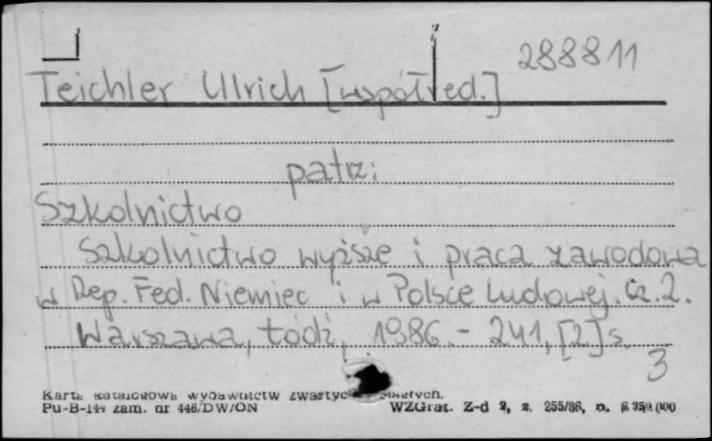 288811
Teichler Ulrich [współred.]
patrz:
Szkolnictwo
Szkolnictwo wyższe i praca zawodowa
w Rep. Fed. Niemiec i w Polsce Ludowej. Cz. 2.
Warszawa, Łódź, 1986. - 241, [2] s.
3
Karta katalogowa wydawnictw zwartych
Pu-B-144 zam. nr 446/DW/ON WZGraf. Z-d 2, z. 255/86, n.